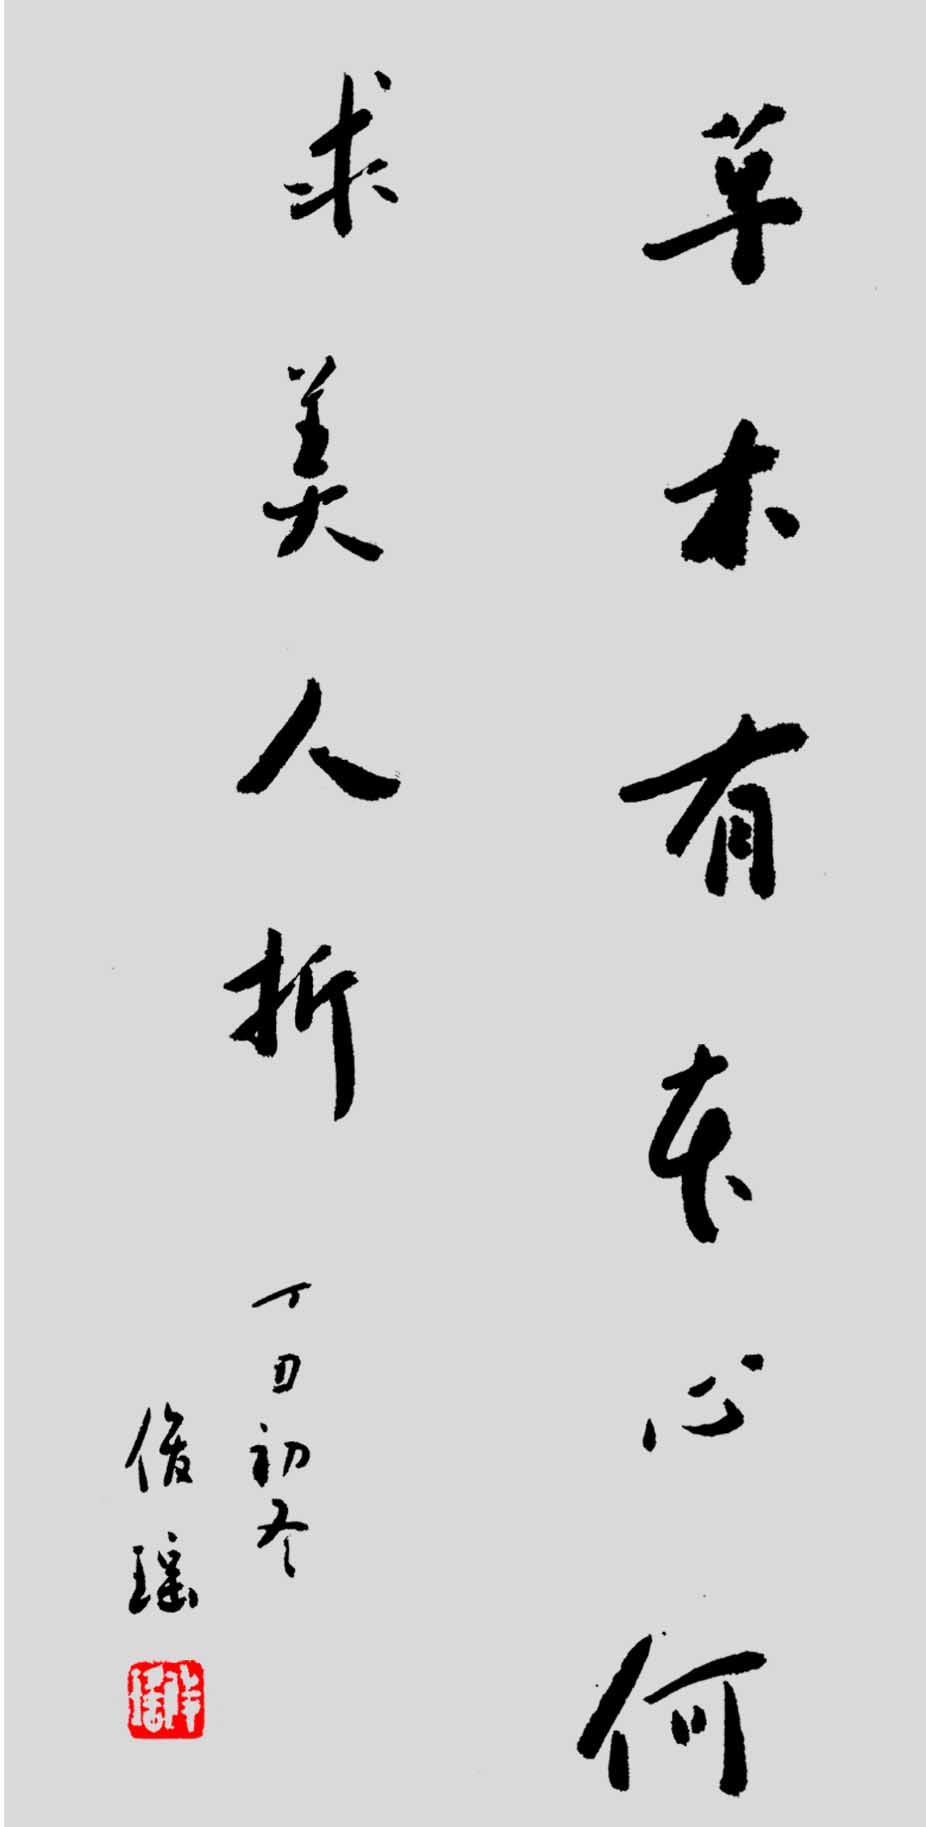 草木有本心何
求美人折
丁丑初冬
俊瑶